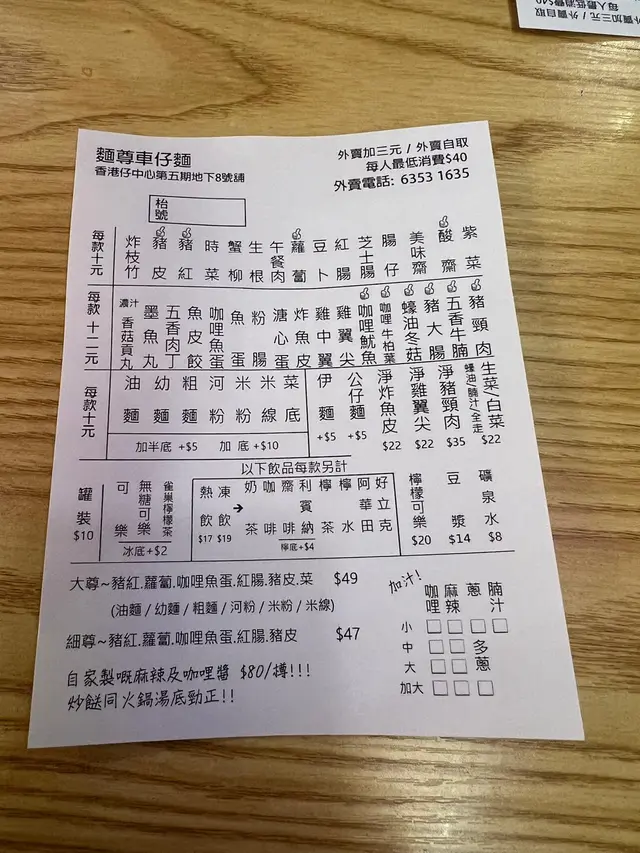 麵尊車仔麵
香港仔中心第五期地下8號舖
外賣加三元 / 外賣自取
每人最低消費$40
外賣電話: 6353 1635
枱號
每款十元
炸枝竹
豬皮
豬紅
時菜
蟹柳
生根
午餐肉
蘿蔔
豆卜
紅腸
芝士腸
腸仔
美味齋
酸齋
紫菜
每款十二元
濃汁香菇貢丸
墨魚丸
五香肉丁
魚皮餃
咖哩魚蛋
魚蛋
粉腸
溏心蛋
炸魚皮
雞中翼
雞翼尖
咖哩魷魚
咖哩牛柏葉
蠔油冬菇
豬大腸
五香牛腩
豬頸肉
每款十元
油麵
幼麵
粗麵
河粉
米粉
米線
菜底
加半底 +$5
加底 +$10
伊麵 +$5
公仔麵 +$5
淨炸魚皮 $22
淨雞翼尖 $22
淨豬頸肉 $35
生菜/白菜 蠔油/腩汁/全走 $22
以下飲品每款另計
罐裝 $10
可樂
無糖可樂
雀巢檸檬茶
冰底+$2
熱飲 $17
凍飲 $19
→
奶茶
咖啡
齋啡
利賓納
檸茶
檸水
阿華田
好立克
檸底+$4
檸檬可樂 $20
豆漿 $14
礦泉水 $8
大尊~豬紅.蘿蔔.咖哩魚蛋.紅腸.豬皮.菜 $49
(油麵/幼麵/粗麵/河粉/米粉/米線)
細尊~豬紅.蘿蔔.咖哩魚蛋.紅腸.豬皮 $47
自家製嘅麻辣及咖哩醬 $80/樽!!!
炒餸同火鍋湯底勁正!!
加汁!
咖哩 麻辣 蔥 腩汁
小
中 多蔥
大
加大
外賣加三元 / 外賣自取
每人最低消費$40